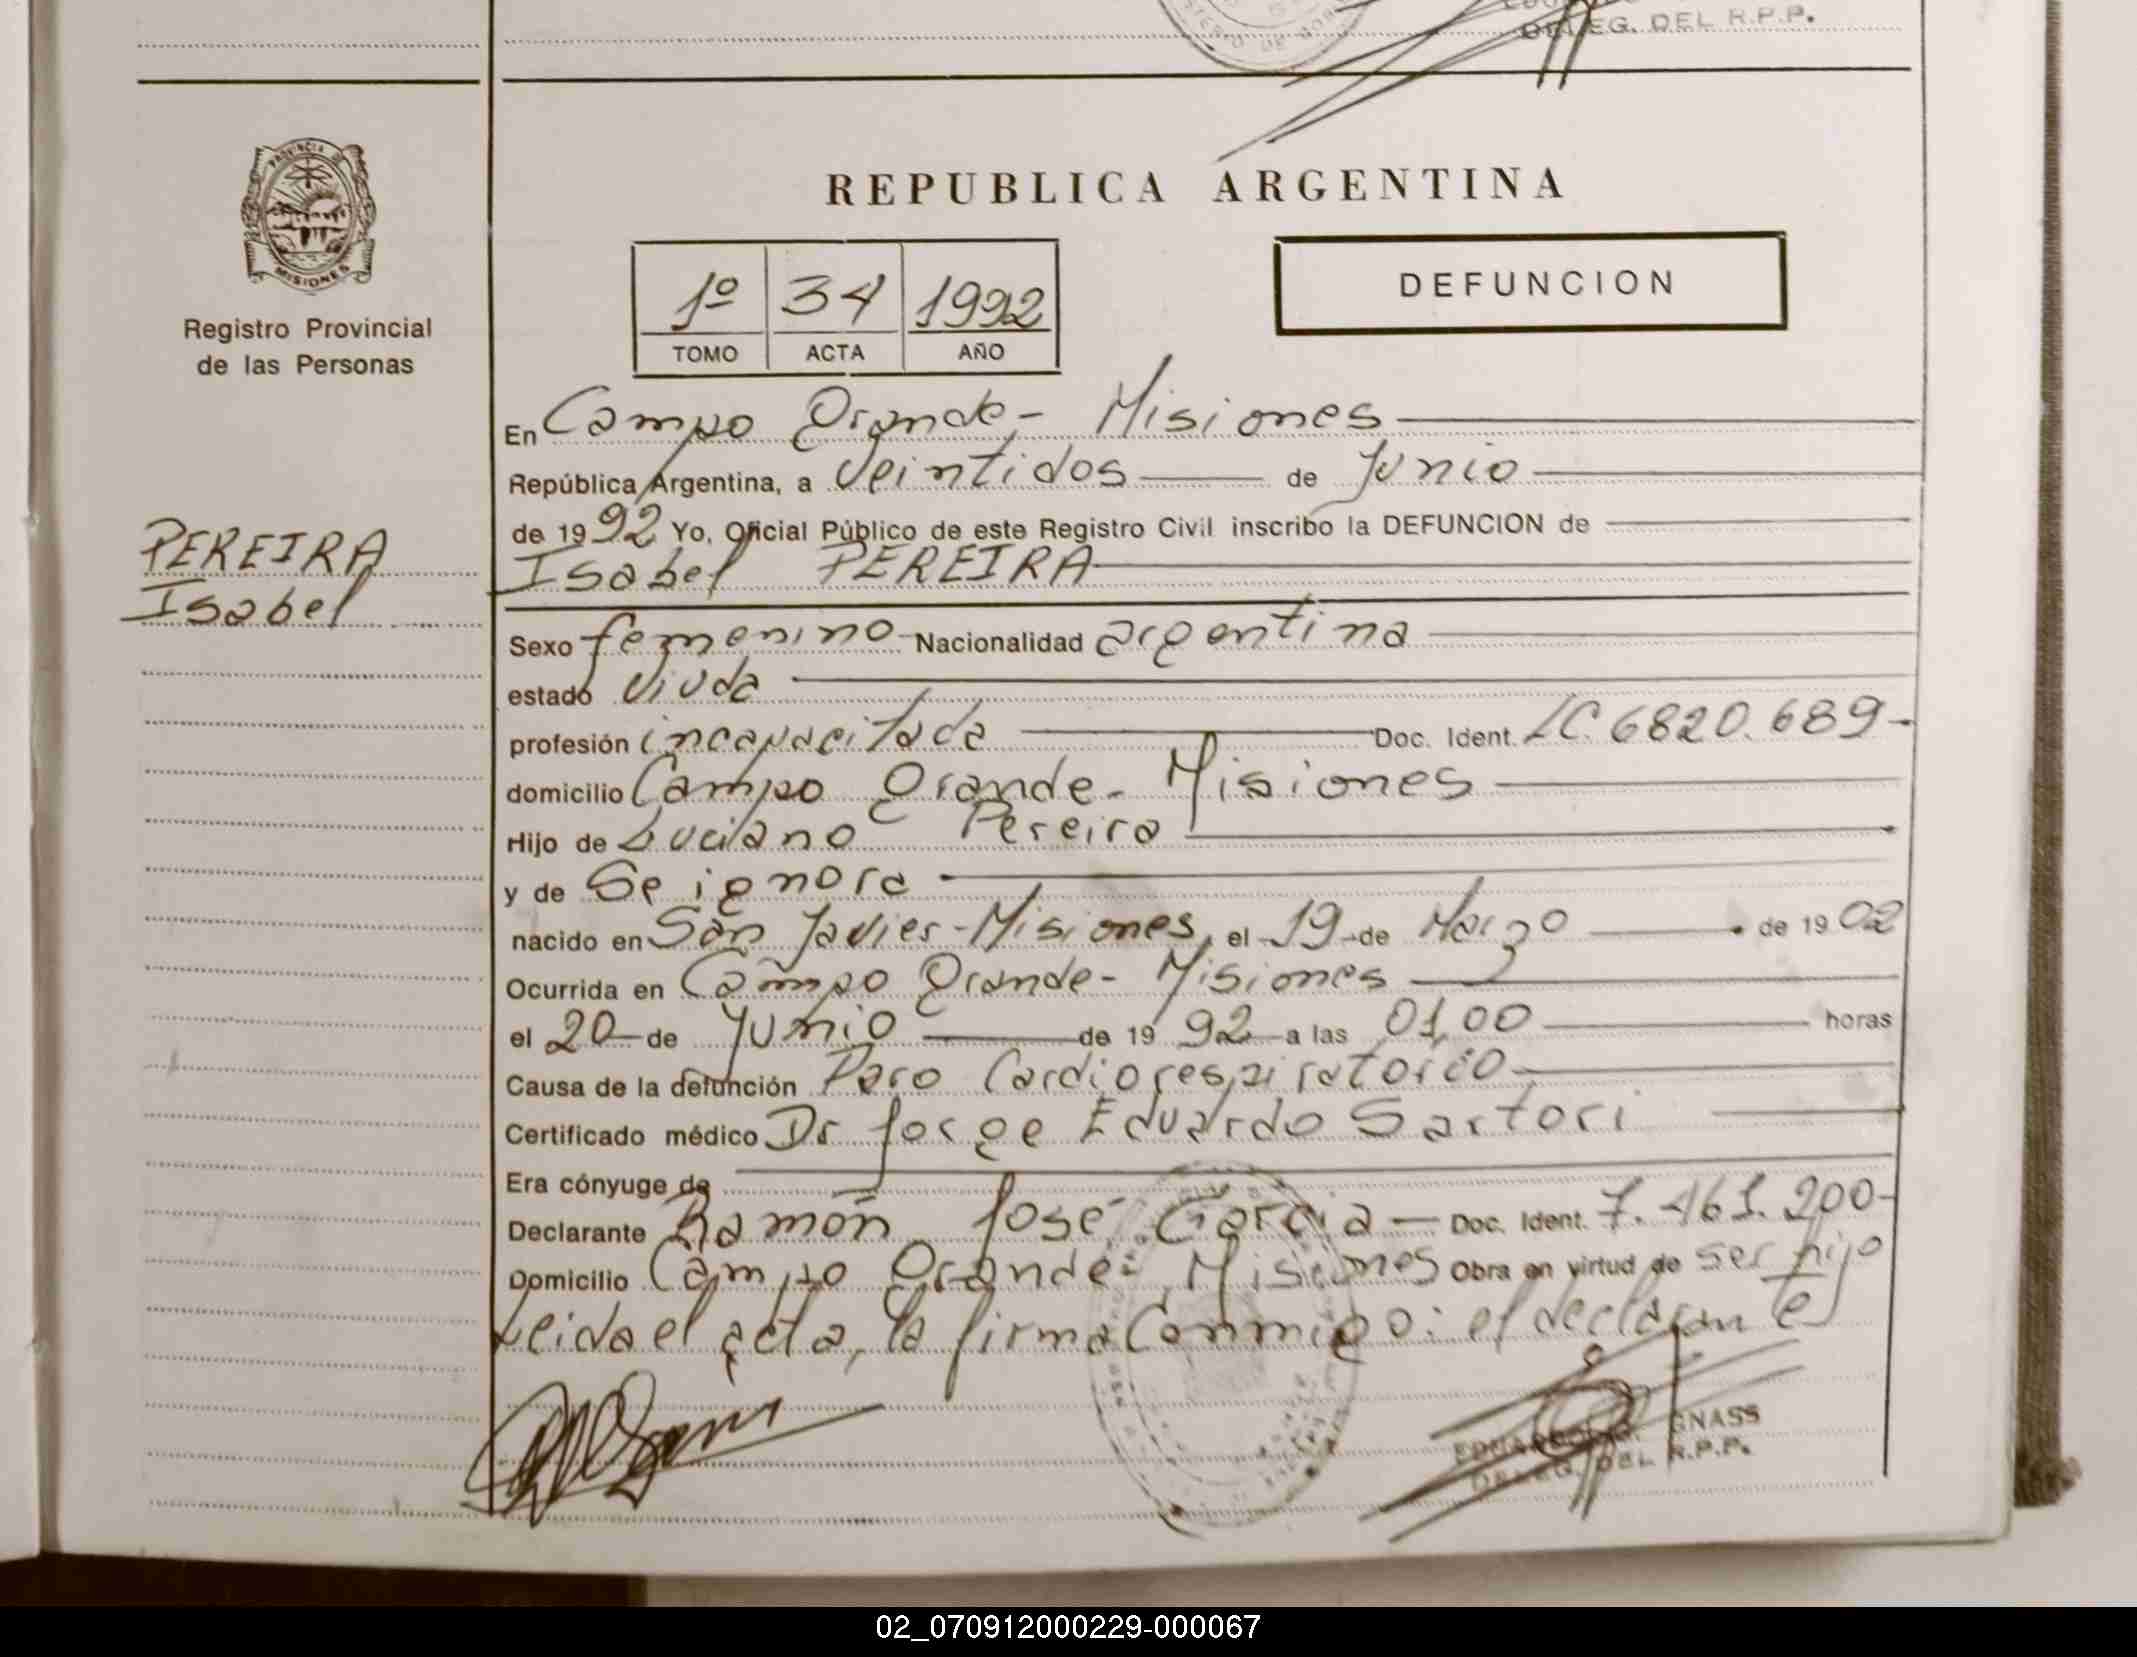 DELEG. DEL R.P.P.
PROVINCIA DE
MISIONES
Registro Provincial
de las Personas
REPUBLICA ARGENTINA
1º 34 1992
TOMO ACTA AÑO
DEFUNCION
En Campo Grande - Misiones
República Argentina, a veintidos de Junio
de 1992 Yo, Oficial Público de este Registro Civil inscribo la DEFUNCION de
PEREIRA
Isabel
Isabel PEREIRA
Sexo femenino Nacionalidad argentina
estado viuda
profesión incapacitada Doc. Ident. LC. 6820.689-
domicilio Campo Grande - Misiones
Hijo de Luciano Pereira
y de Se ignora
nacido en San Javier - Misiones, el 19 de Marzo de 1902
Ocurrida en Campo Grande - Misiones
el 20 de Junio de 1992 a las 01,00 horas
Causa de la defunción Paro Cardiorespiratorio
Certificado médico Dr Jorge Eduardo Sartori
Era cónyuge de
Declarante Ramón José Garcia Doc. Ident. 7.461.200-
Domicilio Campo Grande - Misiones Obra en virtud de ser hijo
Leida el acta, la firma Conmigo: el declarante
GNASS
DELEG. DEL R.P.P.
02_070912000229-000067